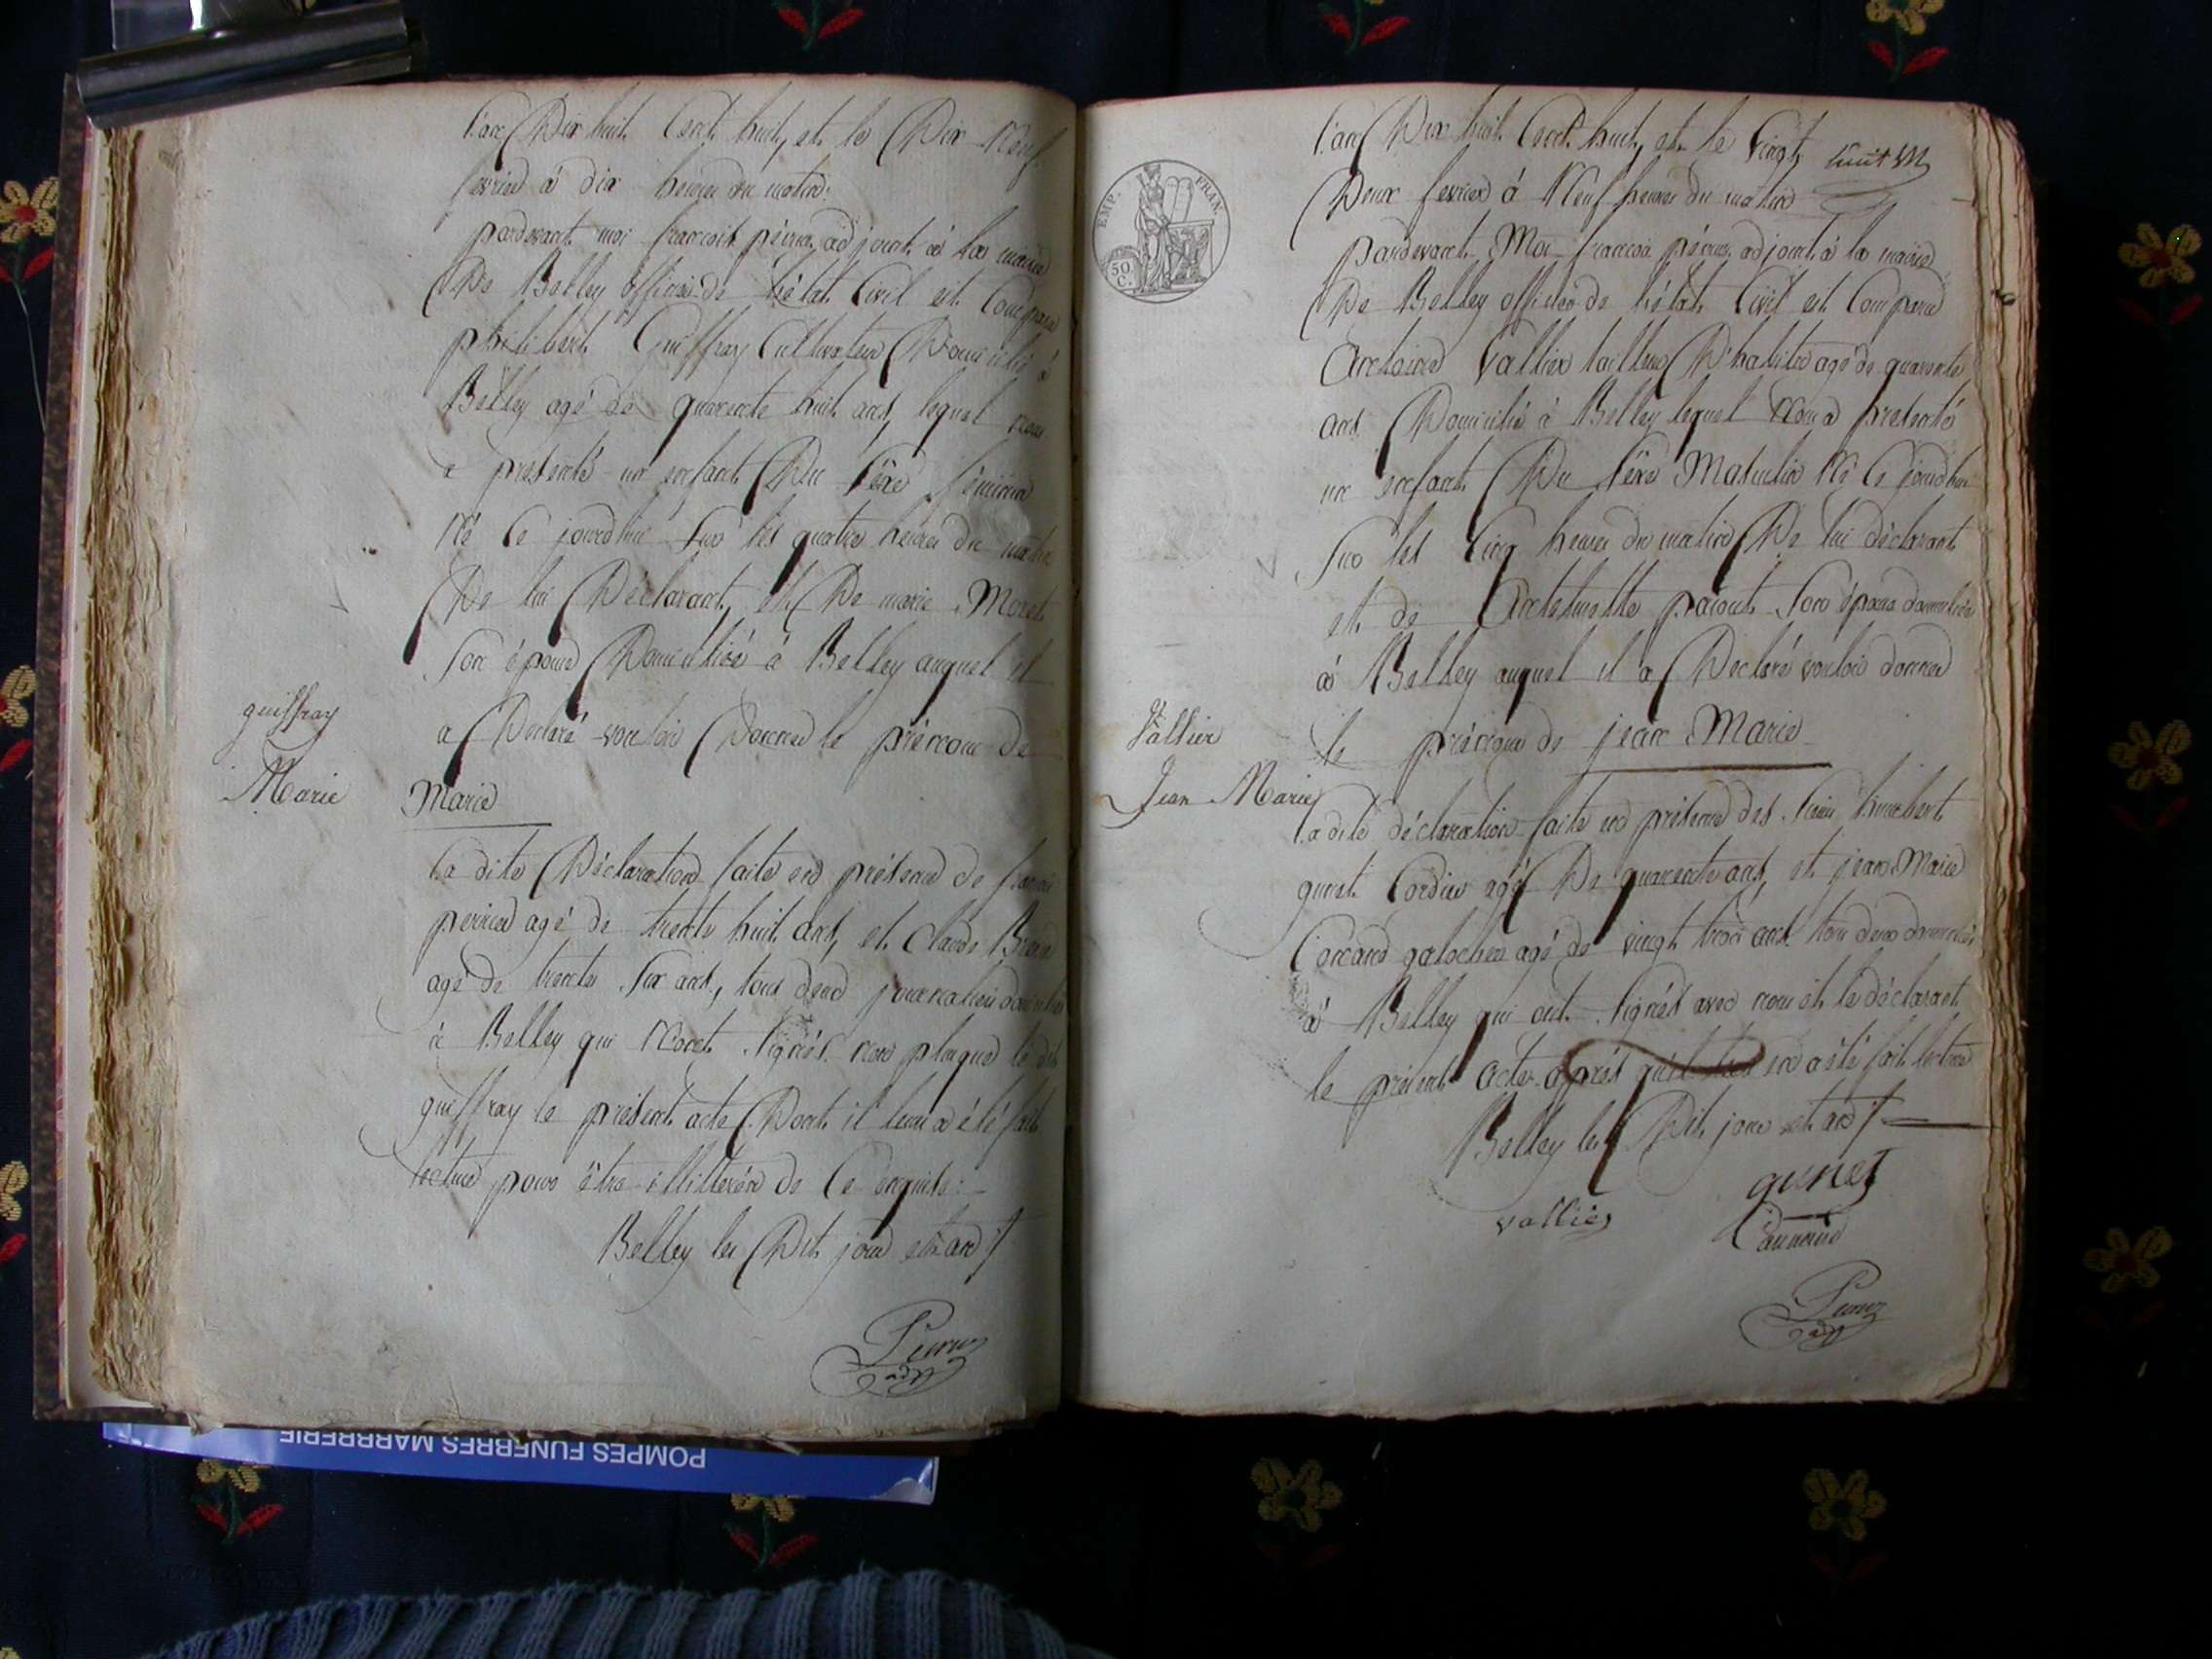 l'an Dix huit Cent huit, et le Dix Neuf
fevrier à dix heures du matin.
pardevant moi françois péruz, adjoint à la mairie
De Belley officier de l'état Civil est Comparu
philibert Guiffray Cultivateur Domicilié à
Belley agé de quarente huit ans, lequel nous
a presenté un enfant Du sèxe féminin
Né Ce jourdhui sur les quatre heures du matin
De lui Déclarant, et De marie Moret
son épouse Domiciliée à Belley auquel il
a Déclaré vouloir Donner le prénom de
guiffray
Marie
Marie
la dite Déclaration faite en présence de
perrier agé de trente huit ans, et Claude
agé de trente six ans, tous deux journaliers domiciliés
à Belley qui N'ont signés non plusque le dit
guiffray le présent acte Dont il leur a été fait
lecture pour être illitterés de Ce enquis.
Belley les Dit jour et an
Péruz
adjt
huit
l'an Dix huit Cent huit, et le Vingt
Deux fevrier à Neuf heures du matin
EMP. FRAN.
50 C.
pardevant Moi françois péruz adjoint à la mairie
De Belley officier de l'état Civil est Comparu
Antoine Vallier tailleur D'habits agé de quarente
ans Domicilié à Belley lequel Nous a presenté
un enfant Du sèxe Masculin Né Ce jourdhui
sur les Cinq heures du matin De lui déclarant
et de Anthelmette son épouse domiciliée
à Belley auquel il a Declaré vouloir donner
le prénom de jean Marie
Vallier
Jean Marie
la dite déclaration faite en présence des sieurs
quinet Cordier agé De quarente ans, et jean Marie
galochier agé de vingt trois ans tous deux domiciliés
à Belley qui ont signés avec nous et le déclarant
le présent acte après en a été fait lecture
Belley les Dit jour et an
quinet
vallier
Péruz
adjt
POMPES FUNEBRES MARBRERIE